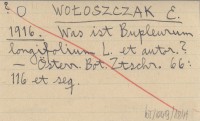 ? O WOŁOSZCZAK E.
1916. Was ist Bupleurum
longifolium L. et autor.?
— Österr. Bot. Ztschr. 66:
116 et seq.